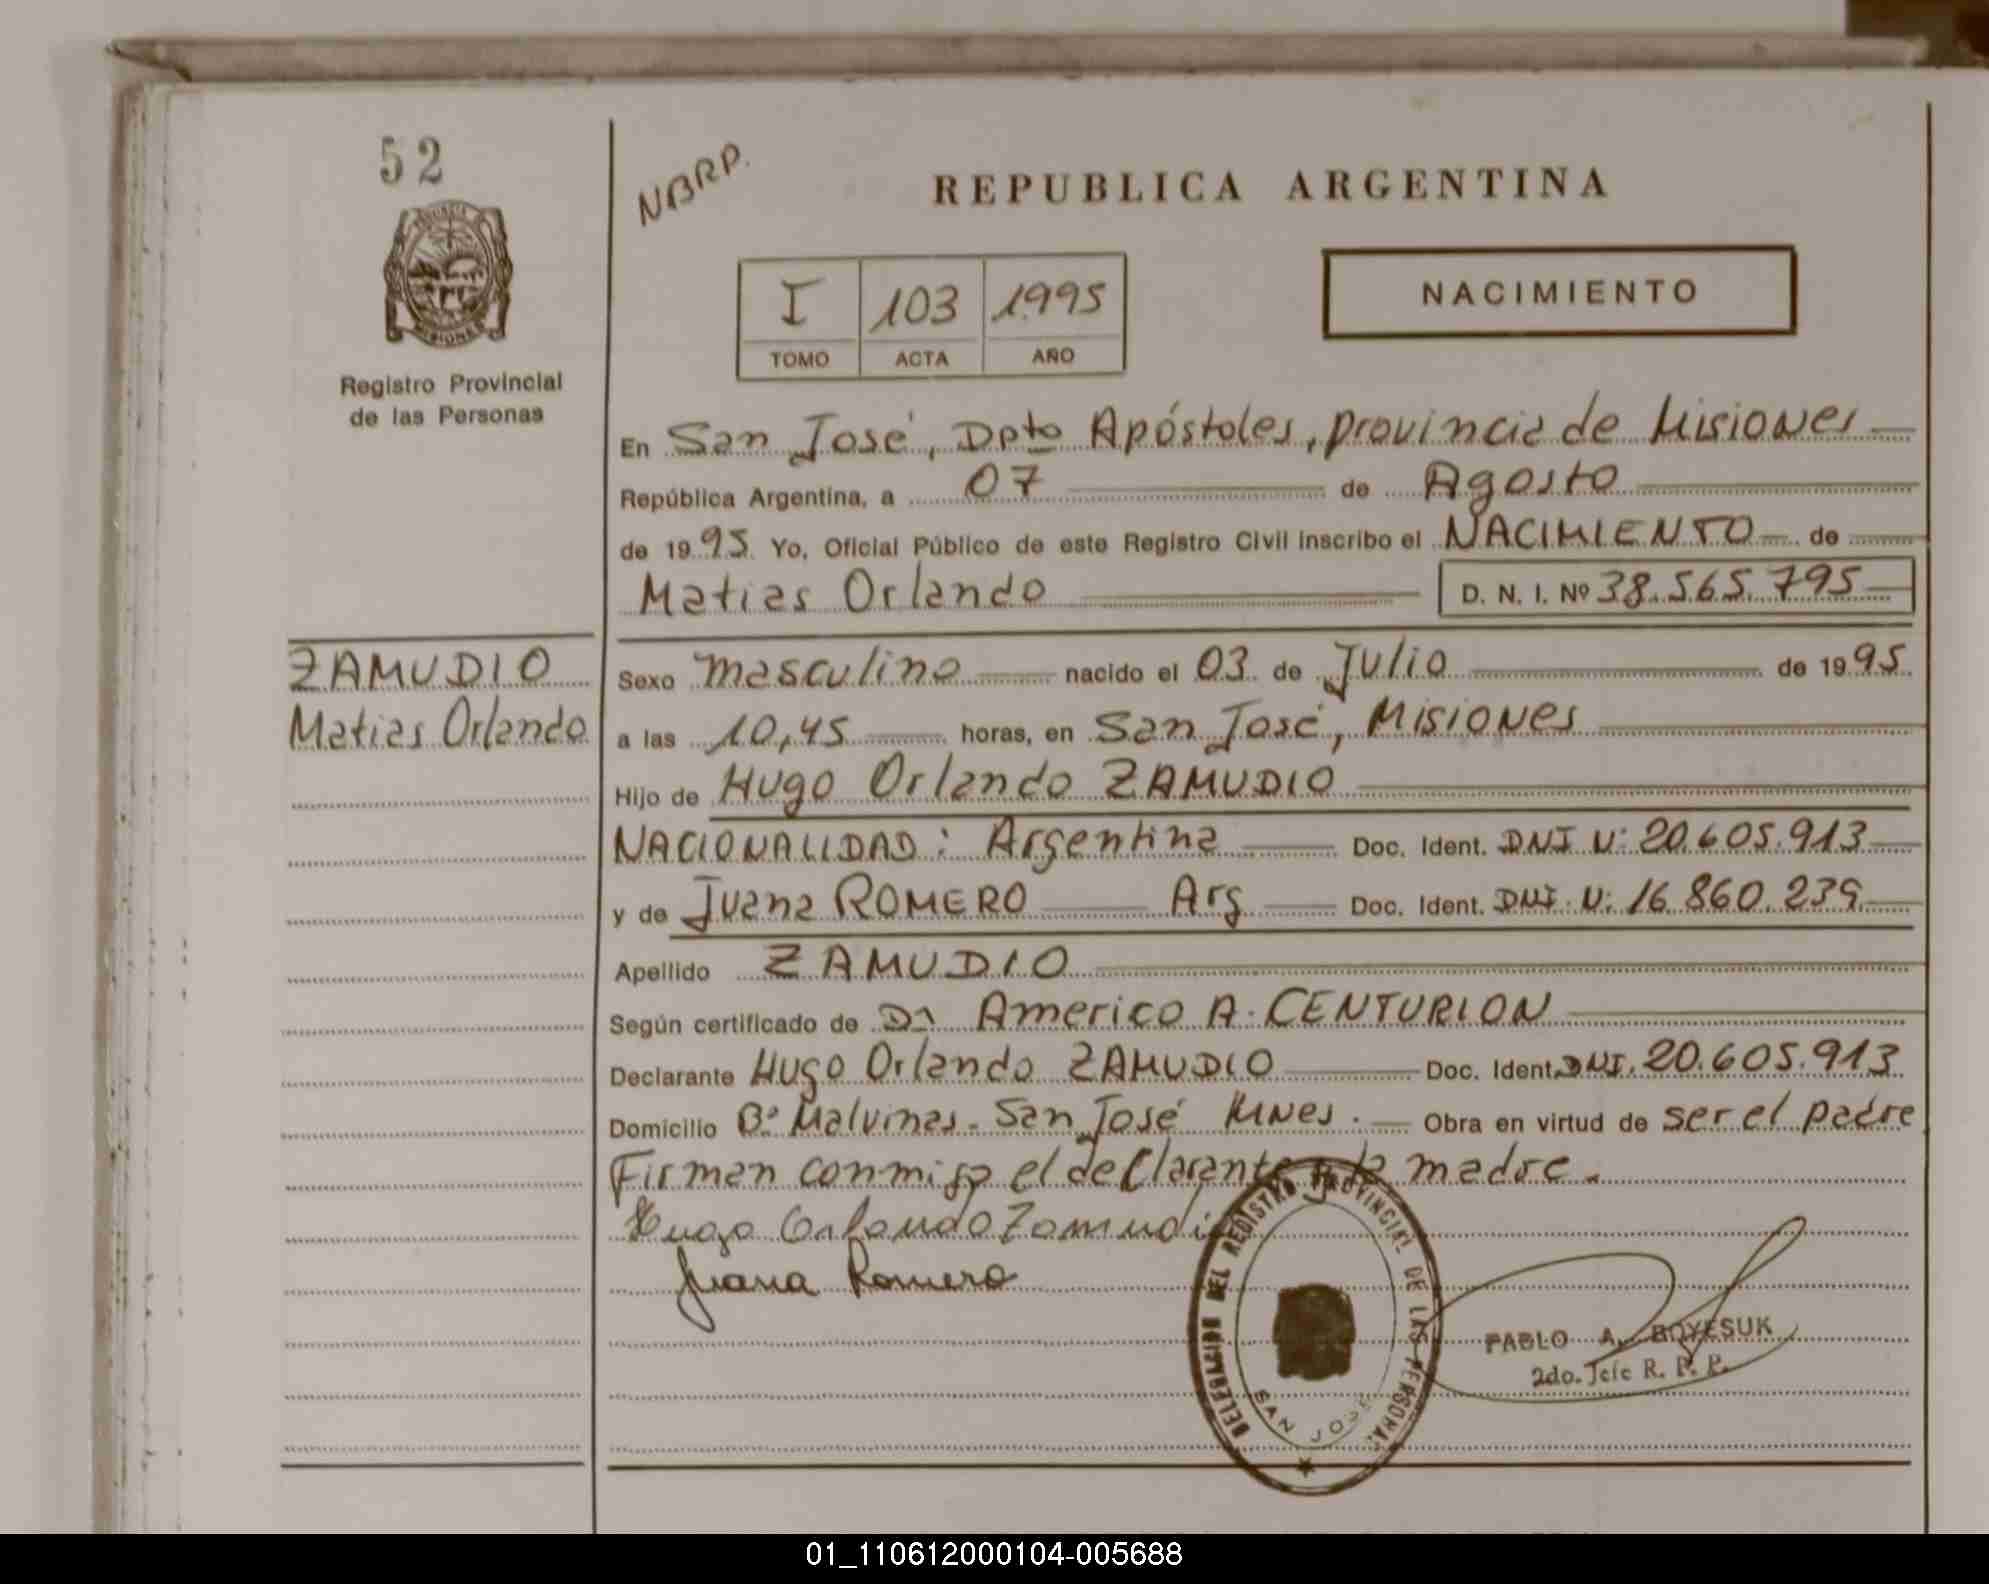 52
NBRP.
REPUBLICA ARGENTINA
MISIONES
Registro Provincial
de las Personas
I 103 1995
TOMO ACTA AÑO
NACIMIENTO
En San José, Dpto Apóstoles, provincia de Misiones
República Argentina, a 07 de Agosto
de 1995 Yo, Oficial Público de este Registro Civil inscribo el NACIMIENTO de
Matias Orlando D. N. I. Nº 38.565.795
ZAMUDIO
Matias Orlando
Sexo masculino nacido el 03 de Julio de 1995
a las 10,45 horas, en San José, Misiones
Hijo de Hugo Orlando ZAMUDIO
NACIONALIDAD: Argentina Doc. Ident. DNI N: 20.605.913
y de Juana ROMERO Arg Doc. Ident. DNI N: 16.860.239
Apellido ZAMUDIO
Según certificado de Dr Americo A. CENTURION
Declarante Hugo Orlando ZAMUDIO Doc. Ident. DNI. 20.605.913
Domicilio Bº Malvinas - San José Mnes. Obra en virtud de ser el padre
Firman conmigo el declarante y la madre.
Hugo Orlando Zamudio
Juana Romero
DELEGACION DEL REGISTRO PROVINCIAL DE LAS PERSONAS
SAN JOSE
PABLO A. BOYESUK
2do. Jefe R. P. P.
01_110612000104-005688